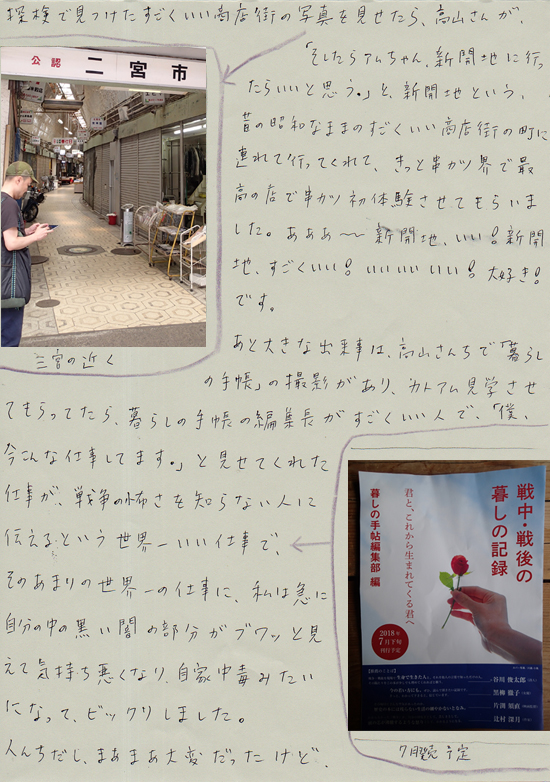 探検で見つけたすごくいい商店街の写真を見せたら、高山さんが、
「そしたらアムちゃん、新開地に行っ
たらいいと思う。」と、新開地という、
昔の昭和なままのすごくいい商店街の町に
連れて行ってくれて、きっと串カツ界で最
高の店で串カツ初体験させてもらいま
した。あぁぁ〜新開地、いい!新開
地、すごくいい!いいいいいい!大好き!
です。
公認 二宮市
三宮の近く
あと大きな出来事は、高山さんちで「暮らし
の手帳」の撮影があり、カトアム見学させ
てもらってたら、暮らしの手帳の編集長がすごくいい人で、「僕、
今こんな仕事してます。」と見せてくれた
仕事が、戦争の怖さを知らない人に
伝える、という世界一いい仕事で、
そのあまりの世界一の仕事に、私は急に
自分の中の黒い闇の部分がブワッと見
えて気持ち悪くなり、自家中毒みたい
になって、ビックリしました。
人んちだし、まあまあ大変だったけど、
戦中・戦後の
暮しの記録
君と、これから生まれてくる君へ
暮しの手帖編集部 編
2018年
7月下旬
刊行予定
谷川俊太郎
黒柳徹子
片渕須直
辻村深月
7月発売予定